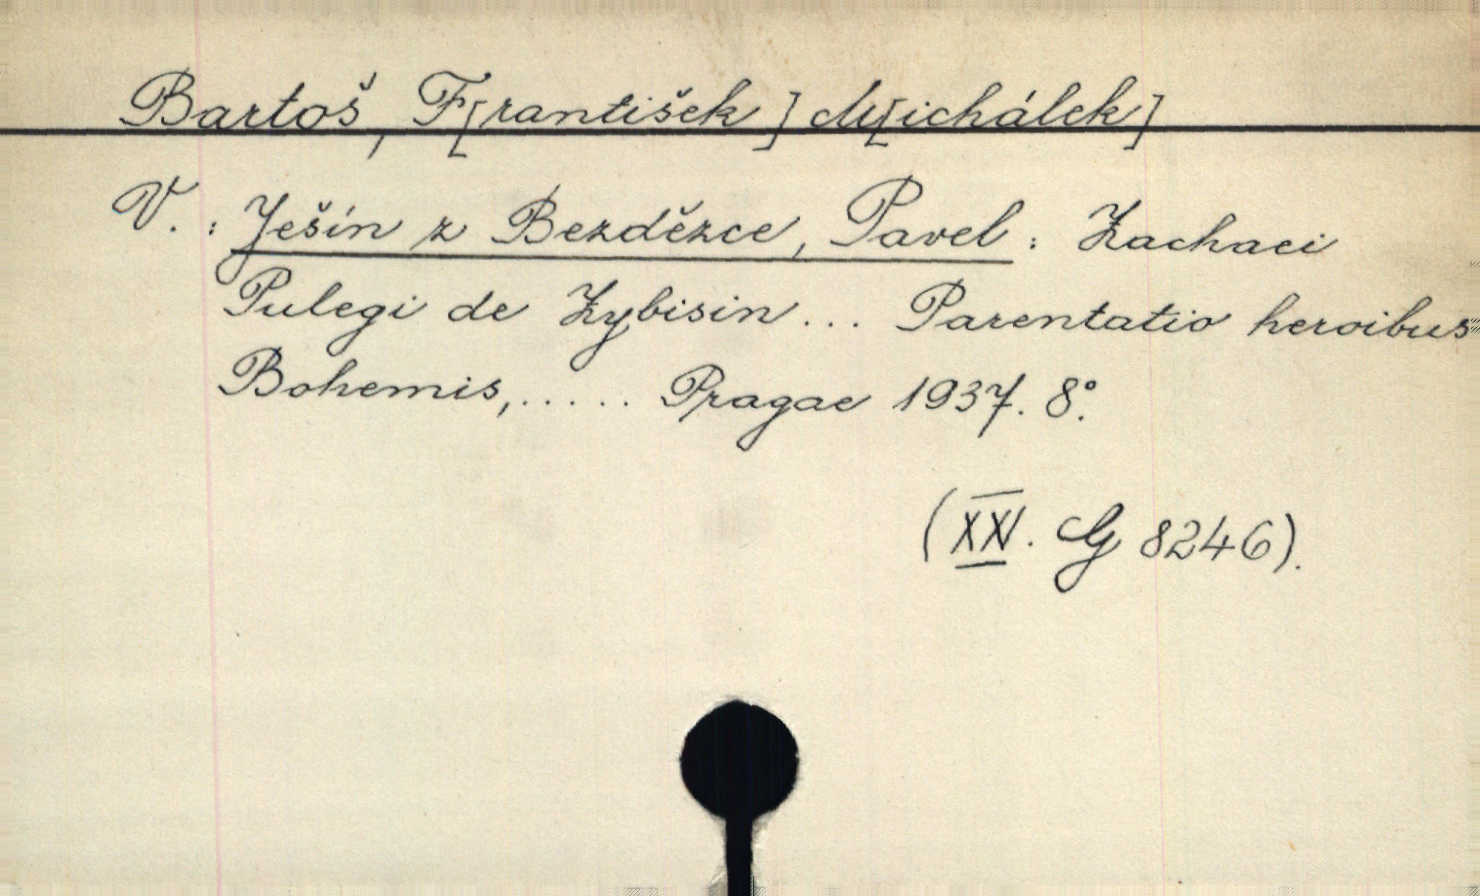 Bartoš, F[rantišek] M[ichálek]
V. : Ješín z Bezdězce, Pavel : Zachaei
Pulegi de Zybisin... Parentatio heroibus
Bohemis,..... Pragae 1937. 8°.
(XXV. G 8246).